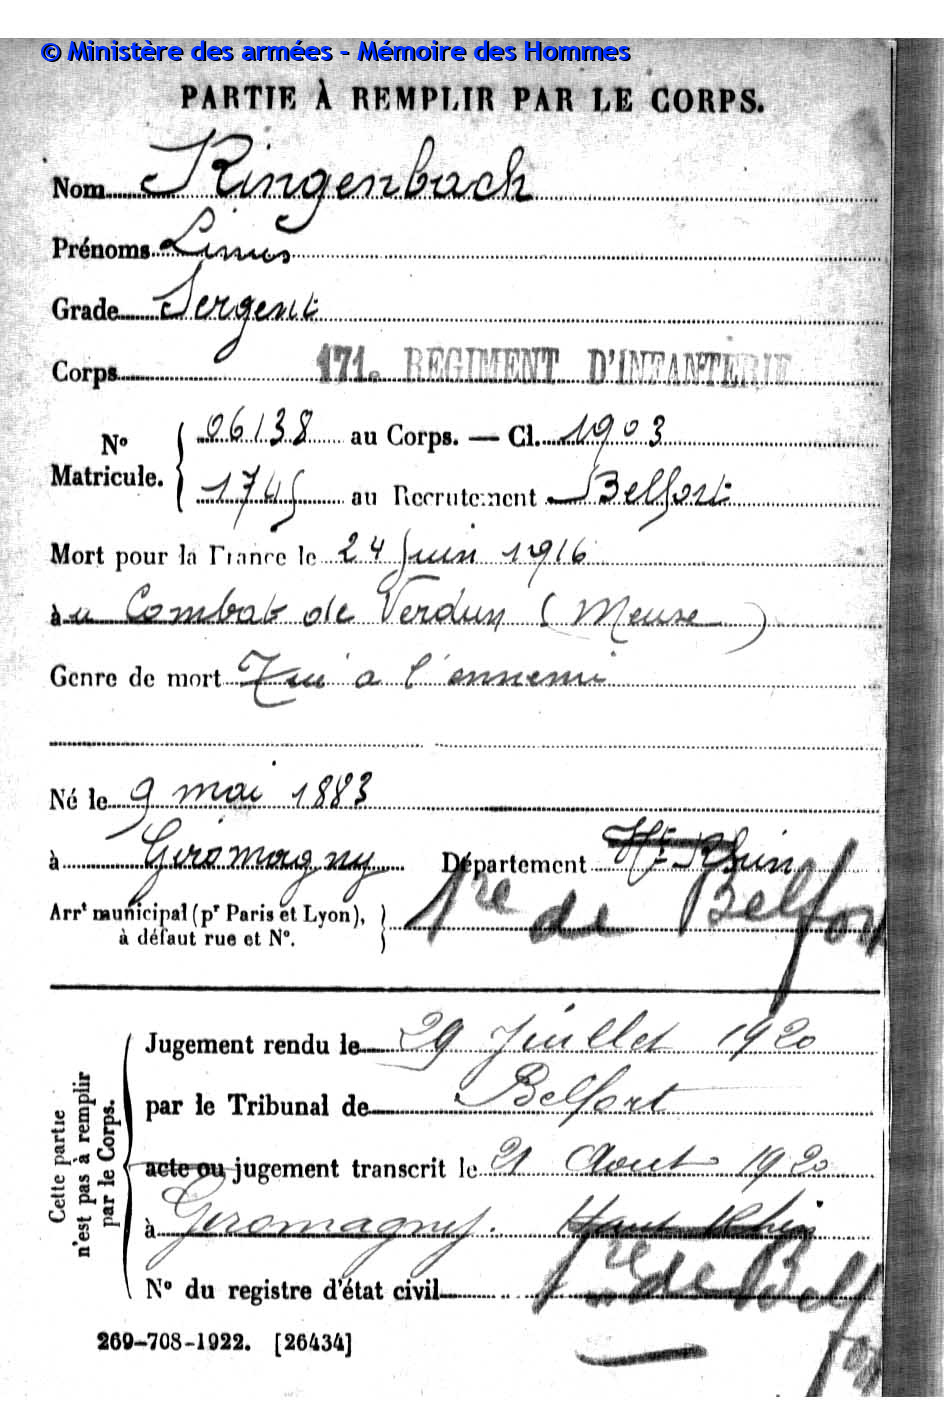 © Ministère des armées - Mémoire des Hommes
PARTIE À REMPLIR PAR LE CORPS.
Nom Ringenbach
Prénoms Linus
Grade Sergent
Corps 171e REGIMENT D'INFANTERIE
N° Matricule.
06138 au Corps. — Cl. 1903
1745 au Recrutement Belfort
Mort pour la France le 24 Juin 1916
àu Combat de Verdun (Meuse)
Genre de mort Tué a l'ennemi
Né le 9 mai 1883
à Giromagny Département Ht Rhin
Arrt municipal (pr Paris et Lyon),
à défaut rue et N°.
Tre de Belfort
Cette partie
n'est pas à remplir
par le Corps.
Jugement rendu le 29 Juillet 1920
par le Tribunal de Belfort
acte ou jugement transcrit le 21 Aout 1920
à Giromagny. Haut Rhin
Tre de Belfort
N° du registre d'état civil
269-708-1922. [26434]